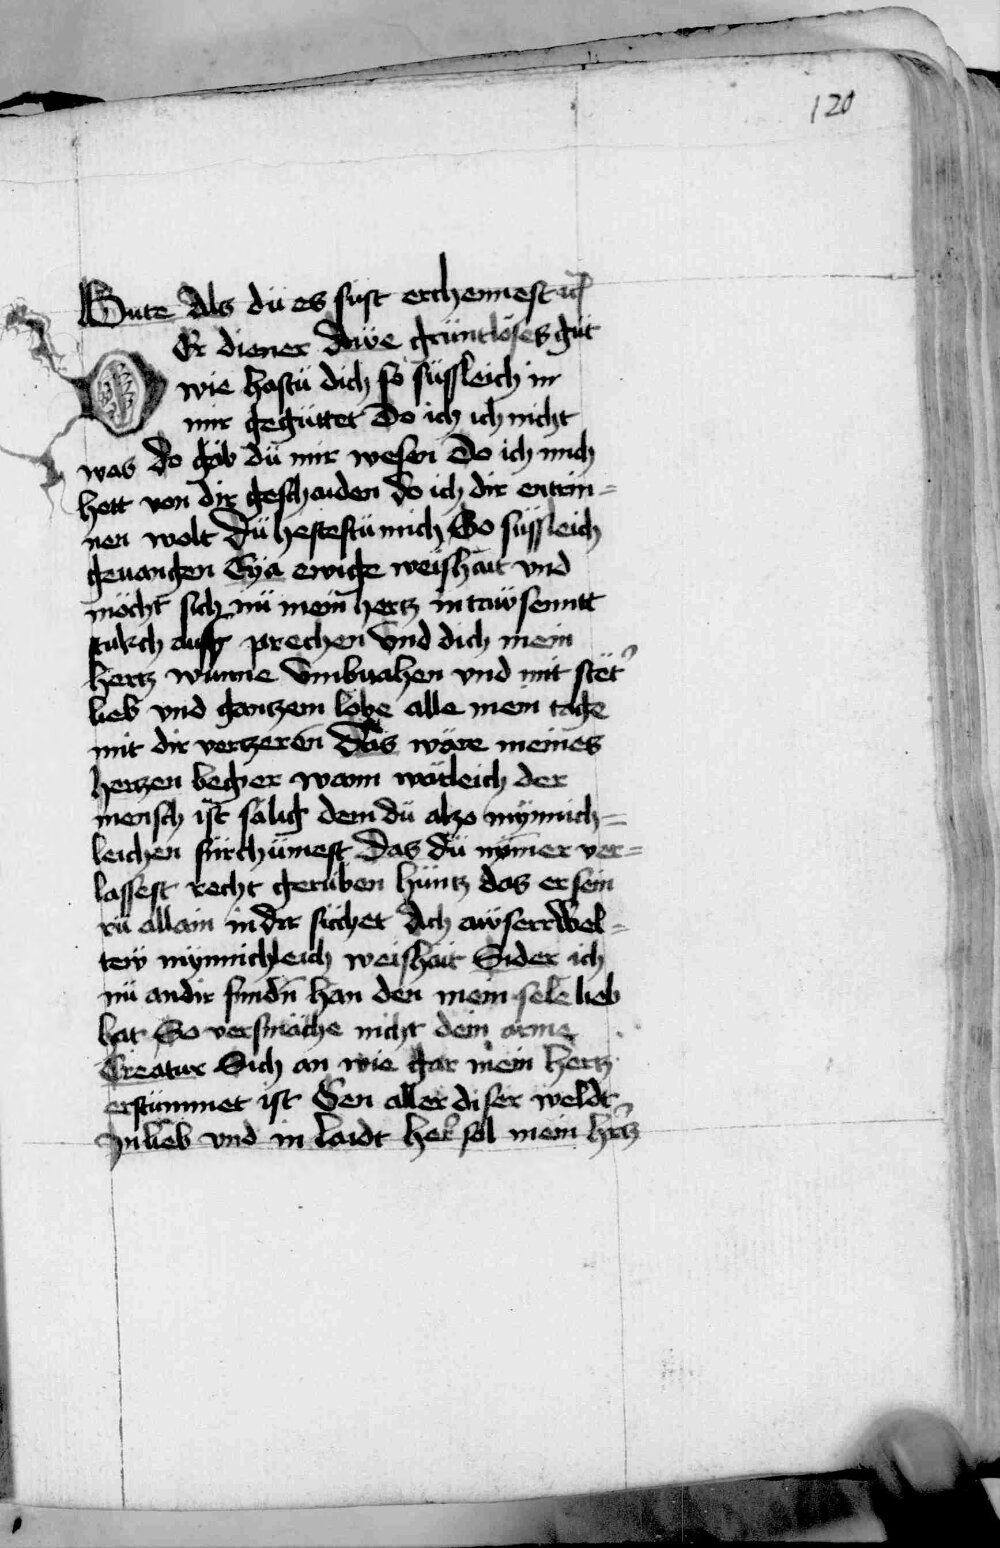 120
Gute Als dü es süst erchennest ich
DEr diener Awe grüntlöses güt
wie hastü dich so süssleich in
mir gegüttet Do ich ich nicht
was do gab dü mir wesen Do ich mich
hett von dir geschaiden do ich dir entrin=
nen wolt Dü hestestü mich So süssleich
geuangen Eya ewige weishait vnd
möcht sich nü mein hertz in tawsenntt
stukch auss prechen Vnd dich mein
hertz wunne Vmbuahen vnd mit stët'
lieb vnd gantzem lobe alle mein tage
mit dir vertzeren Das wäre meines
hertzen beger wann wärleich der
mensch ist sälig dem dü alzo mynnich=
leichen fürchümest Das dü nymer ver=
lassest recht gerüben hüntz das er sein
rü allain in dir süchet Ach awserrwel=
tew mynnichleich weishait Sider ich
nü an dir fundn han den mein sele lieb
hat So versmäche nicht dein arme
Creatur Sich an wie gar mein hertz
erstummet ist Gen aller diser weldt
In lieb vnd in laidt her sol mein hrtz